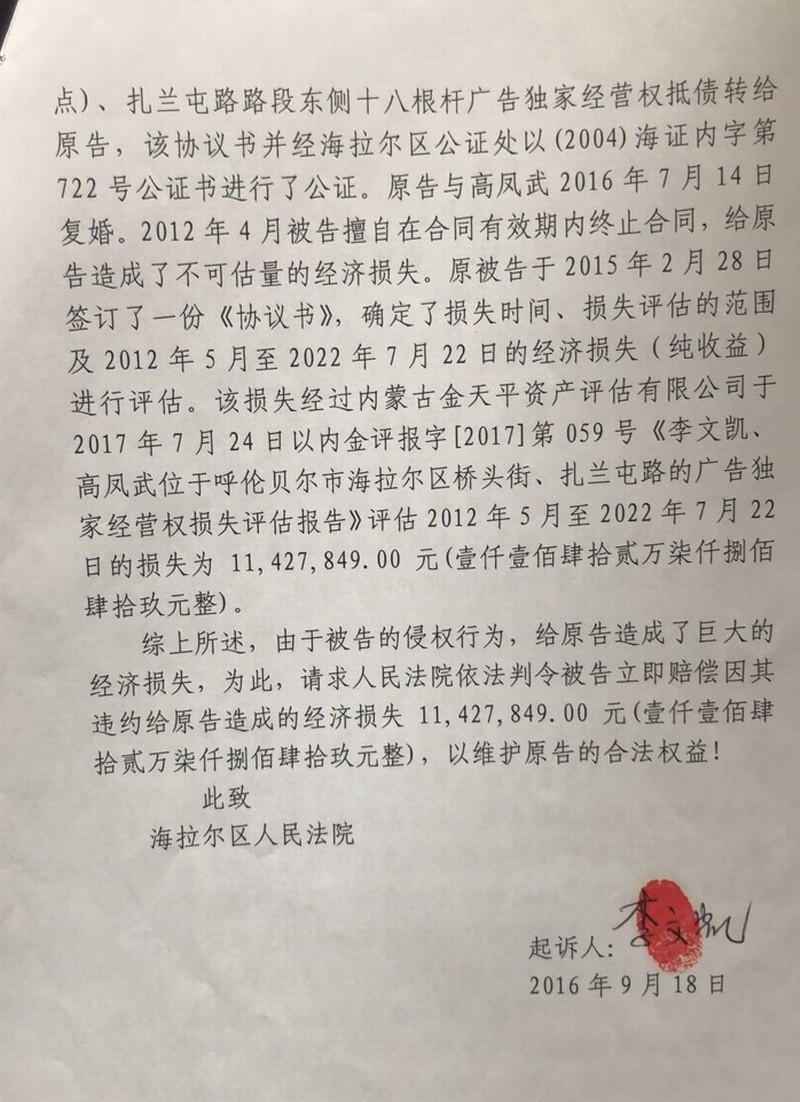 点)、扎兰屯路路段东侧十八根杆广告独家经营权抵债转给
原告，该协议书并经海拉尔区公证处以(2004)海证内字第
722号公证书进行了公证。原告与高凤武2016年7月14日
复婚。2012年4月被告擅自在合同有效期内终止合同，给原
告造成了不可估量的经济损失。原被告于2015年2月28日
签订了一份《协议书》，确定了损失时间、损失评估的范围
及2012年5月至2022年7月22日的经济损失（纯收益）
进行评估。该损失经过内蒙古金天平资产评估有限公司于
2017年7月24日以内金评报字[2017]第059号《李文凯、
高凤武位于呼伦贝尔市海拉尔区桥头街、扎兰屯路的广告独
家经营权损失评估报告》评估2012年5月至2022年7月22
日的损失为 11,427,849.00 元(壹仟壹佰肆拾贰万柒仟捌佰
肆拾玖元整)。
综上所述，由于被告的侵权行为，给原告造成了巨大的
经济损失，为此，请求人民法院依法判令被告立即赔偿因其
违约给原告造成的经济损失 11,427,849.00 元(壹仟壹佰肆
拾贰万柒仟捌佰肆拾玖元整)，以维护原告的合法权益！
此致
海拉尔区人民法院
起诉人：李文凯
2016年9月18日